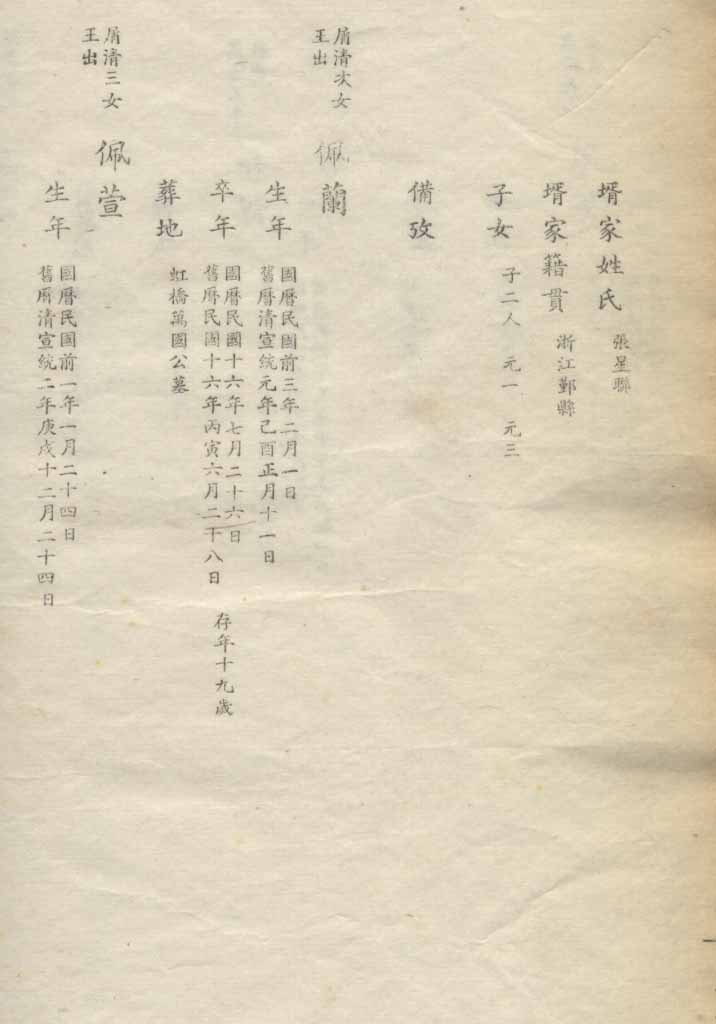 壻家姓氏 張星聯
壻家籍貫 浙江鄞縣
子女 子二人 元一 元三
備攷
屑清次女
王出
佩蘭
生年
國曆民國前三年二月一日
舊曆清宣統元年己酉正月十一日
卒年
國曆民國十六年七月二十六日
舊曆民國十六年丙寅六月二十八日 存年十九歲
葬地 虹橋萬國公墓
屑清三女
王出
佩萱
生年
國曆民國前一年一月二十四日
舊曆清宣統二年庚戌十二月二十四日